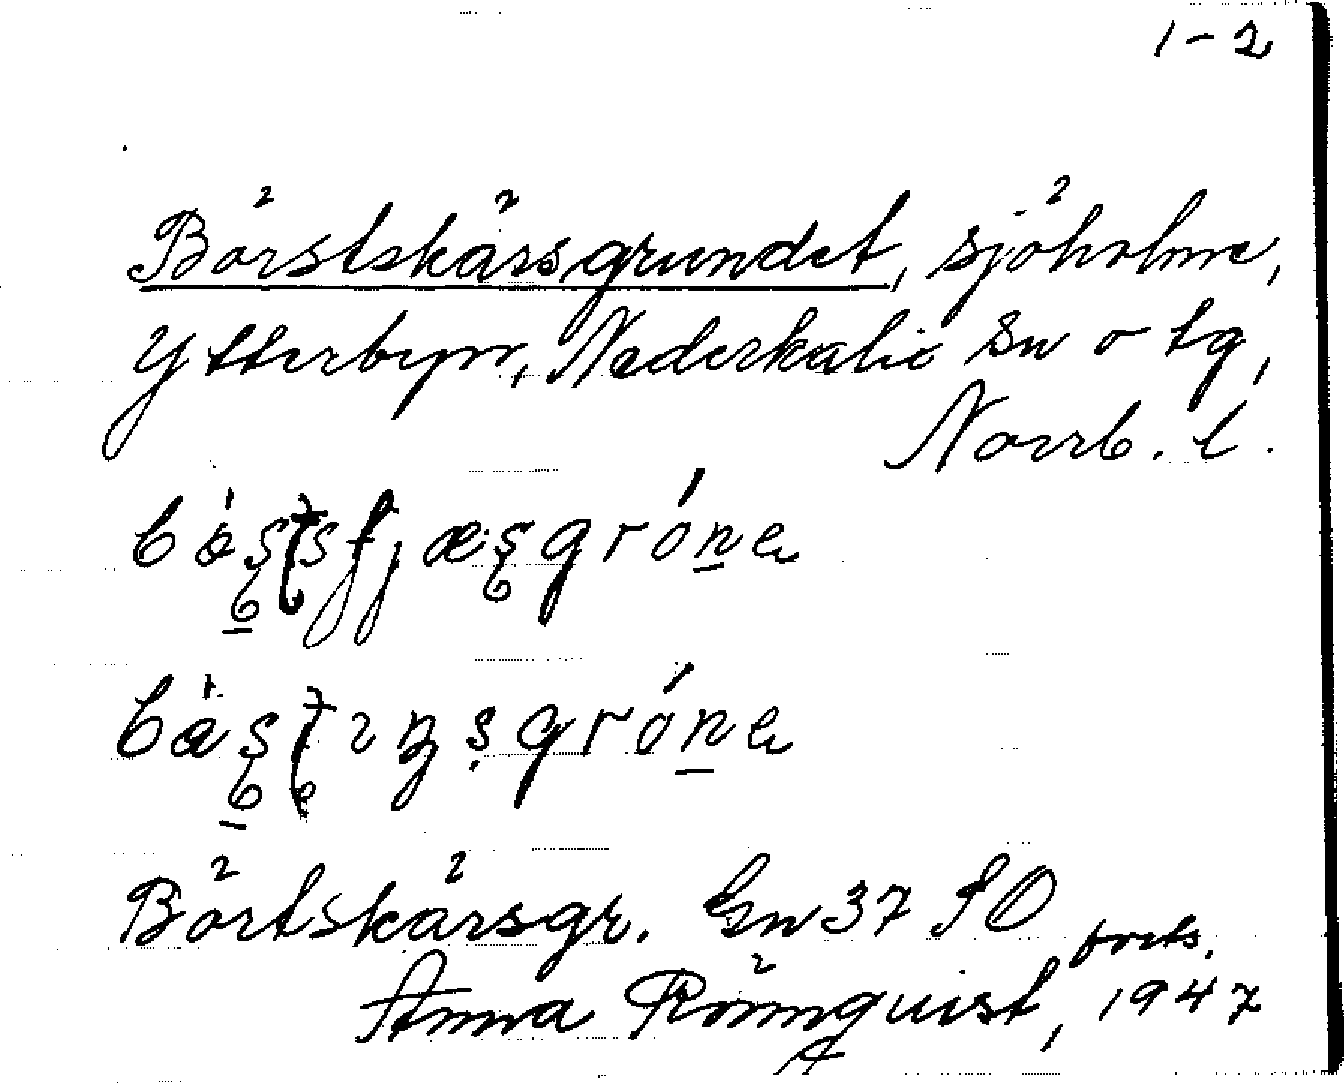 1-2
Börstskärsgrundet, sjöholme,
Ytterbyn, Nederkalix sn o tg,
Norrb. l.
Börtskärsgr. Gn 37 SO
forts.
Anna Rönnquist, 1947